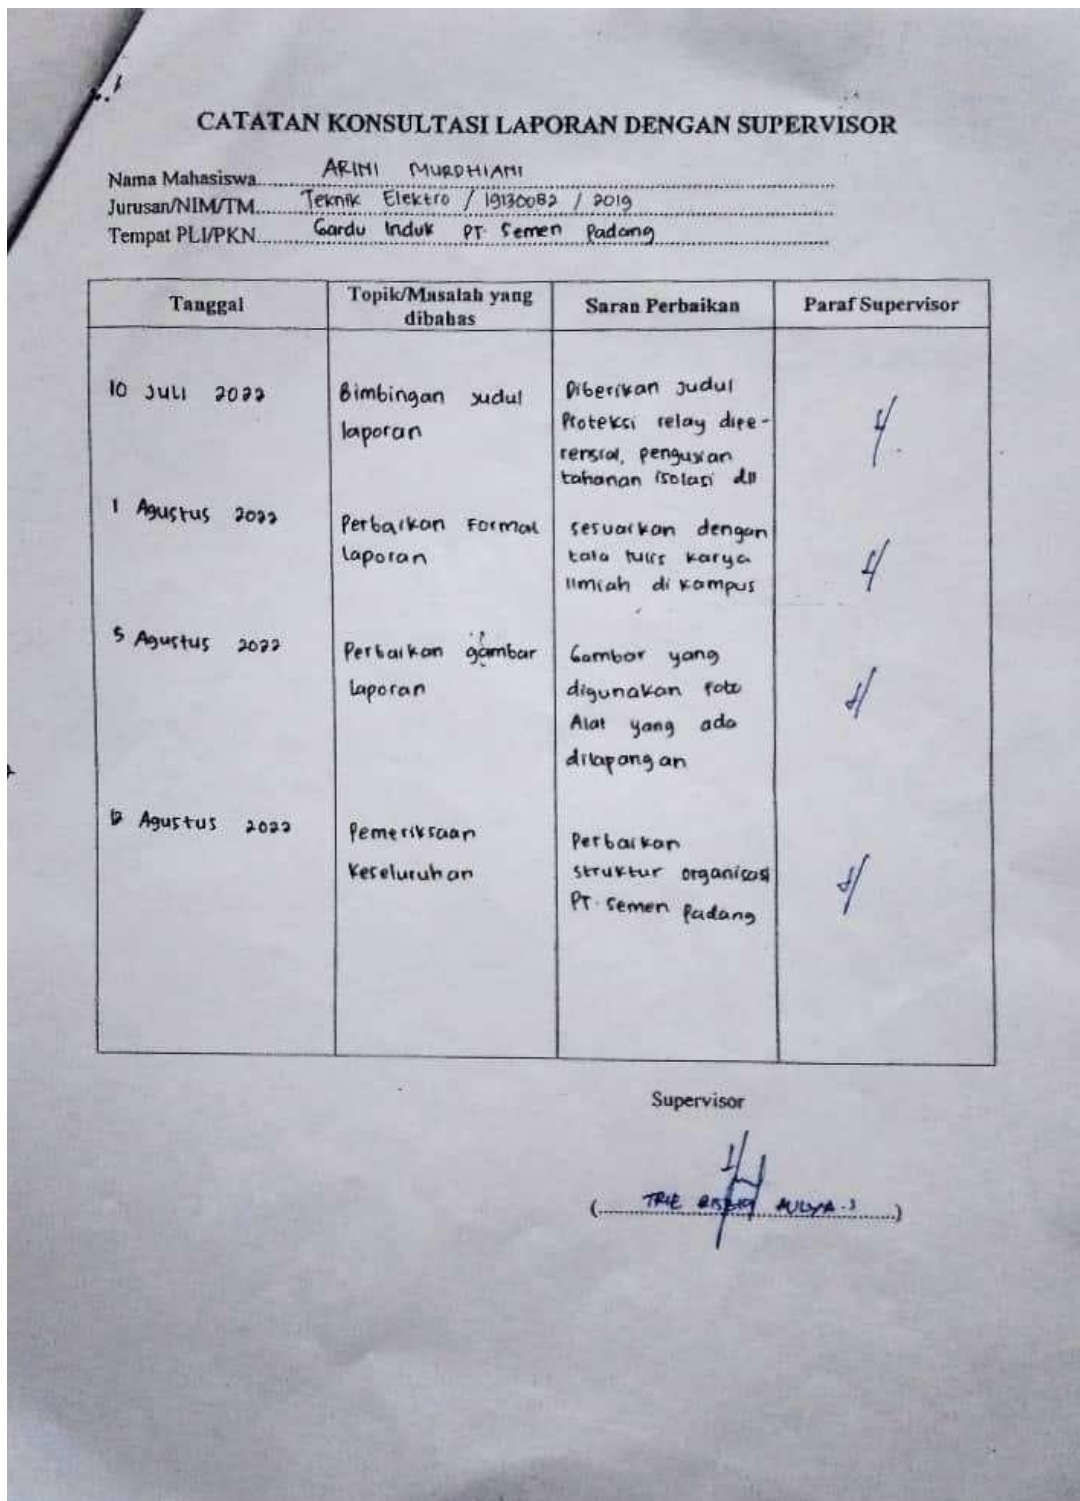 CATATAN KONSULTASI LAPORAN DENGAN SUPERVISOR
Nama Mahasiswa ARINI MURDHIANI
Jurusan/NIM/TM Teknik Elektro / 19130082 / 2019
Tempat PLI/PKN Gardu Induk PT. Semen Padang
Tanggal
Topik/Masalah yang
dibahas
Saran Perbaikan
Paraf Supervisor
10 Juli 2022
Bimbingan judul
laporan
Diberikan judul
Proteksi relay dife-
rensial, pengujian
tahanan isolasi dll
1 Agustus 2022
Perbaikan Format
laporan
sesuaikan dengan
tata tulis karya
Ilmiah di kampus
5 Agustus 2022
Perbaikan gambar
laporan
Gambar yang
digunakan foto
Alat yang ada
dilapangan
12 Agustus 2022
Pemeriksaan
Keseluruhan
Perbaikan
struktur organisasi
PT. Semen Padang
Supervisor
(TRIE)